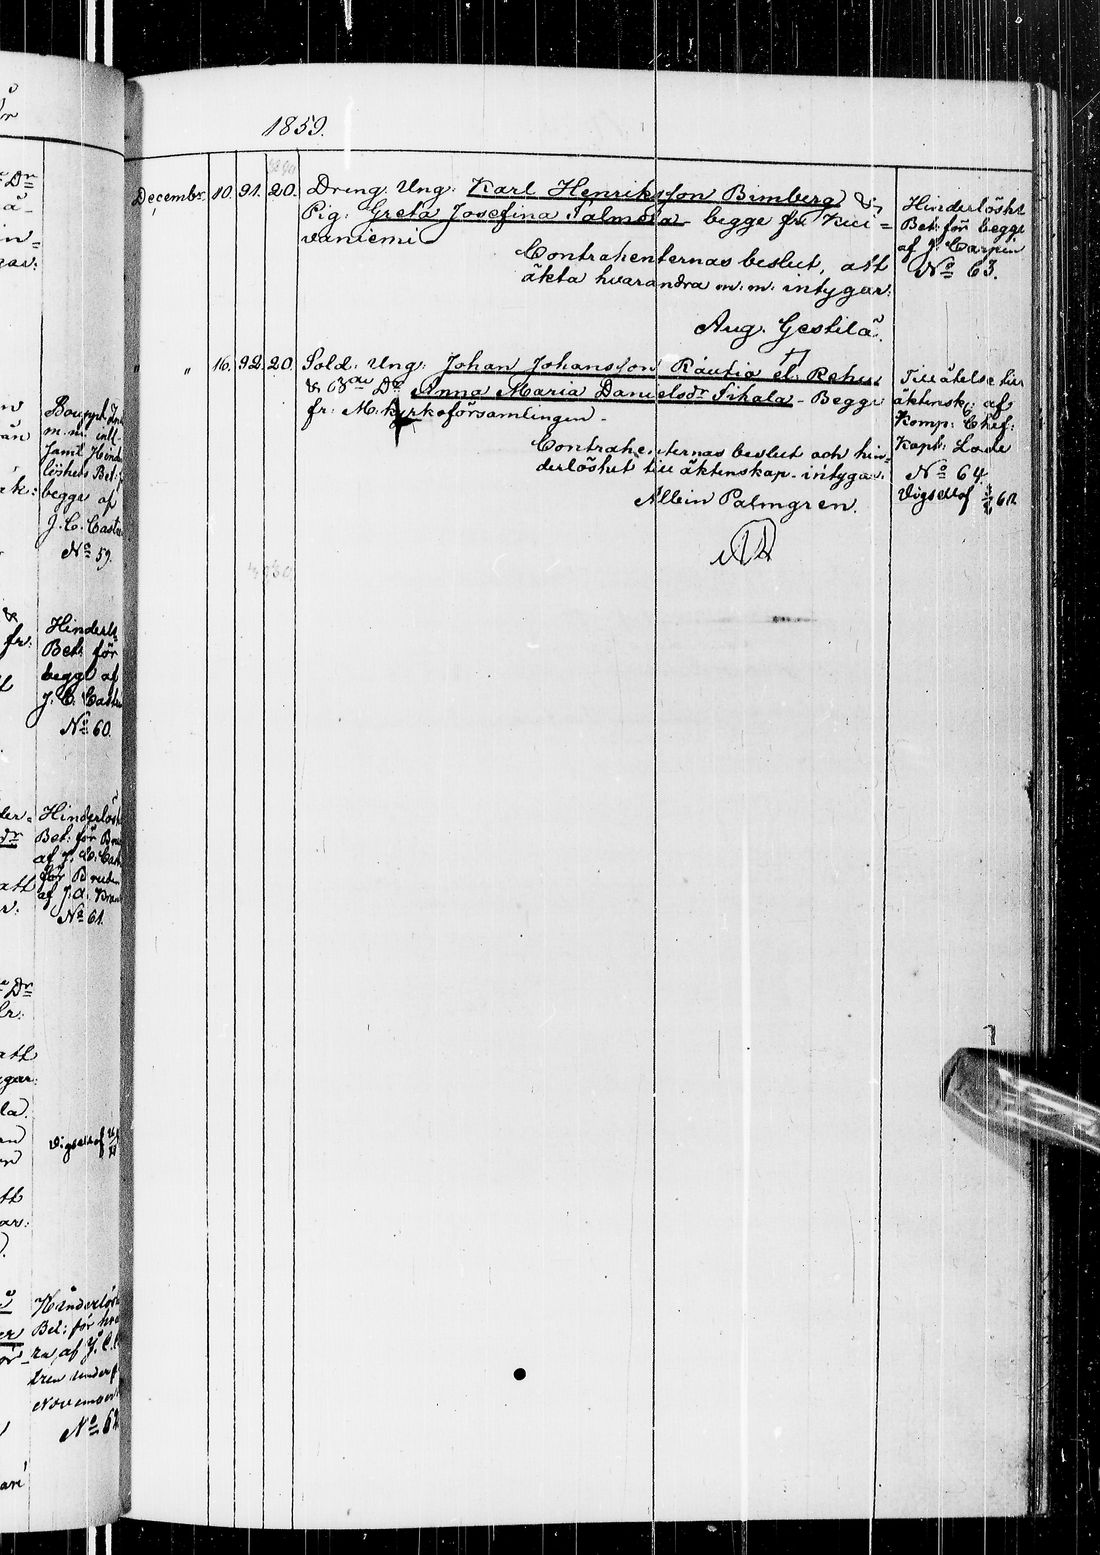 1859.
Decembr. 10. 91. 20. Dreng. Ung. Karl Henriksson Bimberg &
Pig. Greta Josefina Salmela begge fr. Kii=
vaniemi
Contrahenternas beslut, att
äkta hvarandra m. m. intygar:
Aug. Gestilä.
Hinderlöshet
Bet: för begge
af J. Carpen
No 63.
" " 16. 92. 20. Sold. Ung. Johan Johansson Rautio el. Rehu
& Bde Dr Anna Maria Danielsdr Sihala - Begge
fr: M. kyrkoförsamlingen.
Contrahenternas beslut och hin=
derlöshet till äktenskap intygar.
Albin Palmgren.
Tillåtelse till
äktensk. af
Komp: Chef:
Kapt: Lode
No 64.
Vigselbof
Bet:
begge af
No 59.
fr:
Hinderlö
Bet: för
begge af
J. C. Castr
No 60.
Hinderlösh
Bet: för Bru
af J. C. Cast
för Bruden
af J. A. Bran
No 61.
att
Vigselbof
Hinderlösh
Bet: för hva
ra, af J. C. C
tren under f
November
No 62